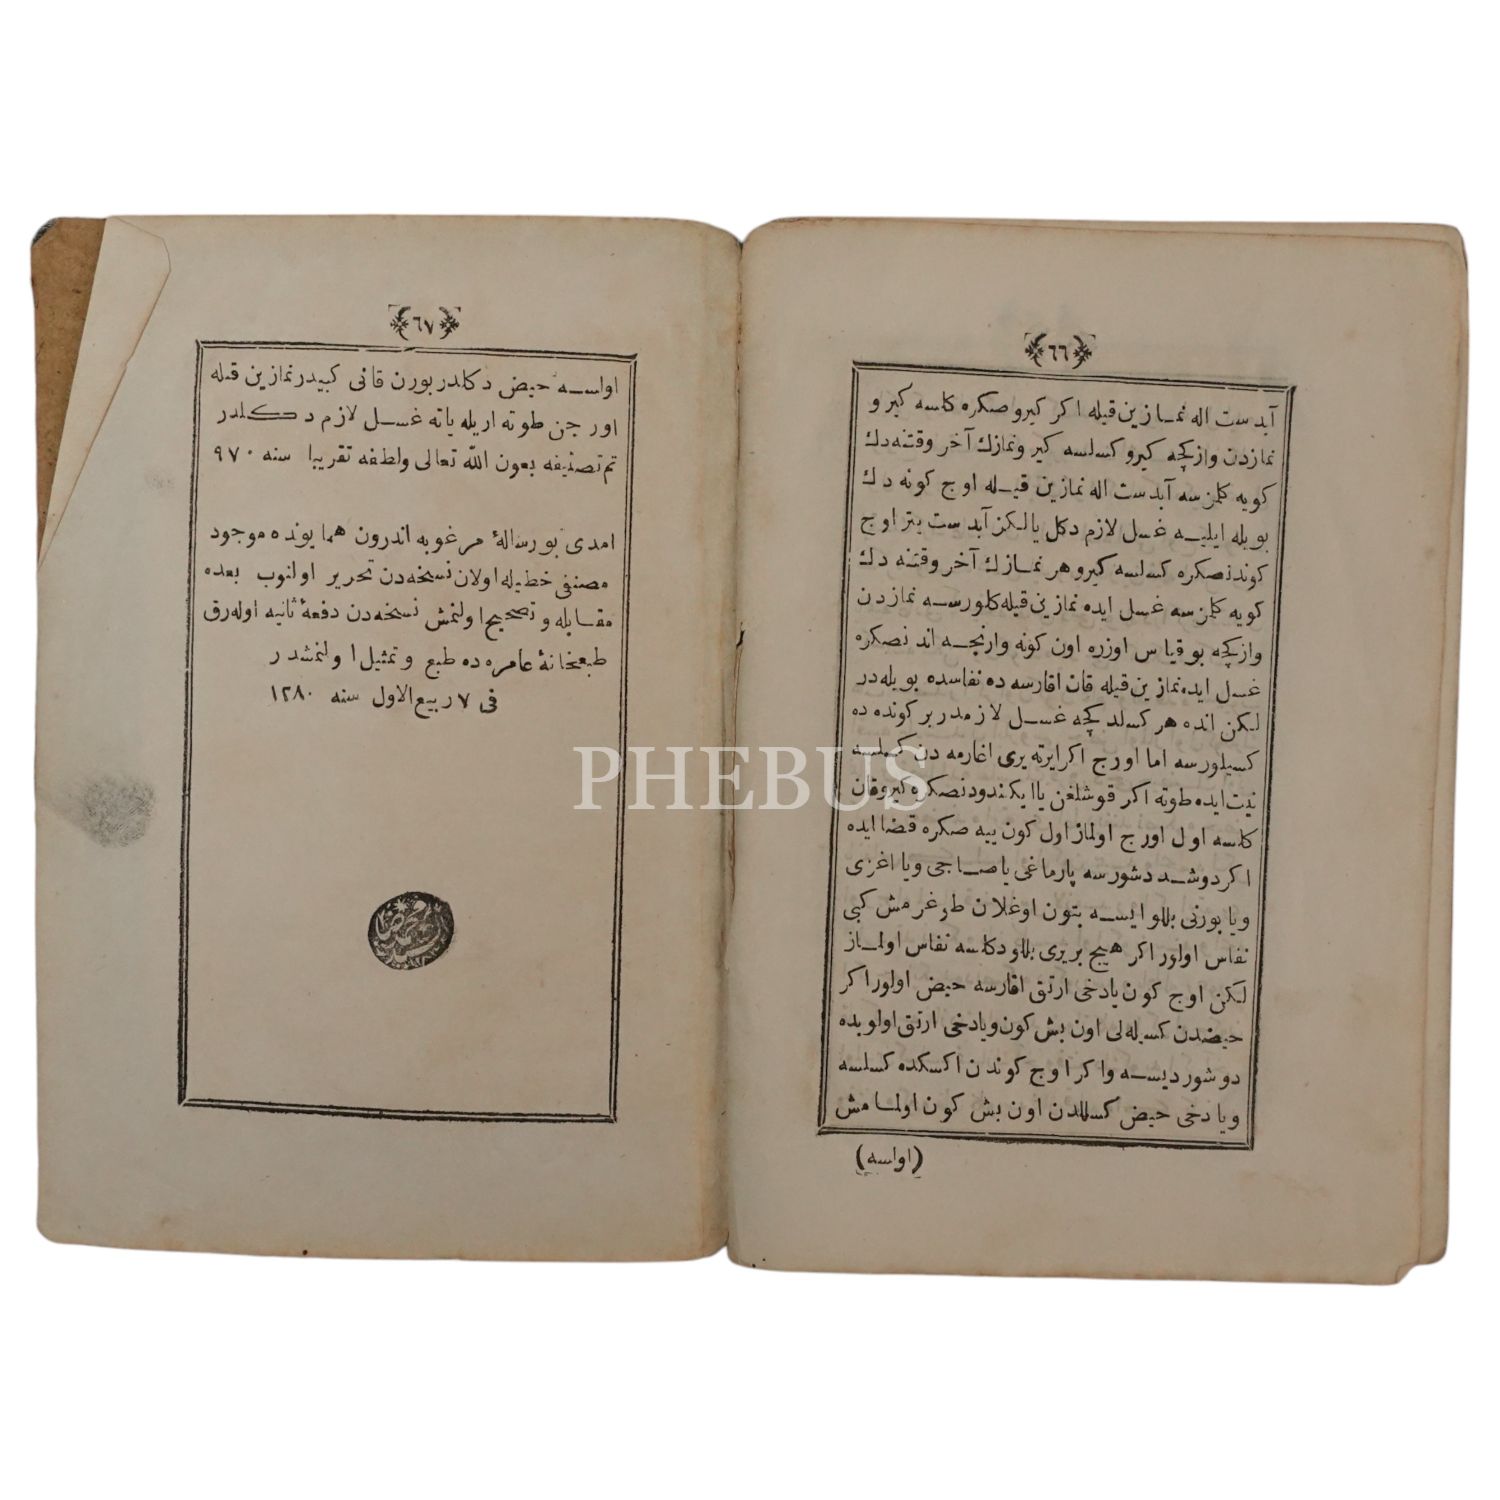 ﴿٦٦﴾
آبدست اله نمازين قيله اكر كيرو صكره كلسه كيرو
نمازدن وازكچه كيرو كسلسه كير ونمازك آخر وقتنه دك
كويه كلمز سه آبدست اله نمازين قيله اوج كونه دك
بويله ايليه غسل لازم دكل يالكز آبدست يتر اوج
كوندنصكره كسلسه كيرو هر نمازك آخر وقتنه دك
كويه كلمز سه غسل ايده نمازين قيله كلورسه نمازدن
وازكچه بو قياس اوزره اون كونه وارنجه اند نصكره
غسل ايده نمازين قيله قان اقارسه ده نفاسده بويله در
لكن انده هر كسلدكچه غسل لازمدر بر كونده ده
كسيلورسه اما اورج اكر ايرته يرى اغارمه دن كسلسه
نيت ايده طوته اكر قوشلغن يا ايكندودنصكره كيرو قان
كلسه اول اورج اولماز اول كون ييه صكره قضا ايده
اكر دوشد دشورسه پارماغى يا صاجى ويا اغزى
ويا بورنى بللو ايسه بتون اوغلان طوغرمش كبى
نفاس اولور اكر هيچ بر يرى بللو دكلسه نفاس اولماز
لكن اوج كون يا دخى ارتق اقارسه حيض اولور اكر
حيضدن كسيله لى اون بش كون ويا دخى ارتق اولوبده
دوشورديسه واكر اوج كوندن اكسكده كسلسه
ويا دخى حيض كسللدن اون بش كون اولمامش
(اولسه)
﴿٦٧﴾
اولسه حيض دكلدر بورن قانى كبيدر نمازين قيله
اورجن طوته اريله ياته غسل لازم دكلدر
تم تصنيفه بعون الله تعالى ولطفه تقريبا سنه ٩٧٠
امدى بو رسالۀ مرغوبه اندرون همايونده موجود
مصنفى خطيله اولان نسخه دن تحرير اولنوب بعده
مقابله و تصحيح اولنمش نسخه دن دفعۀ ثانيه اوله رق
طبعخانۀ عامره ده طبع و تمثيل اولنمشدر
فى ٧ ربيع الاول سنه ١٢٨٠
PHEBUS